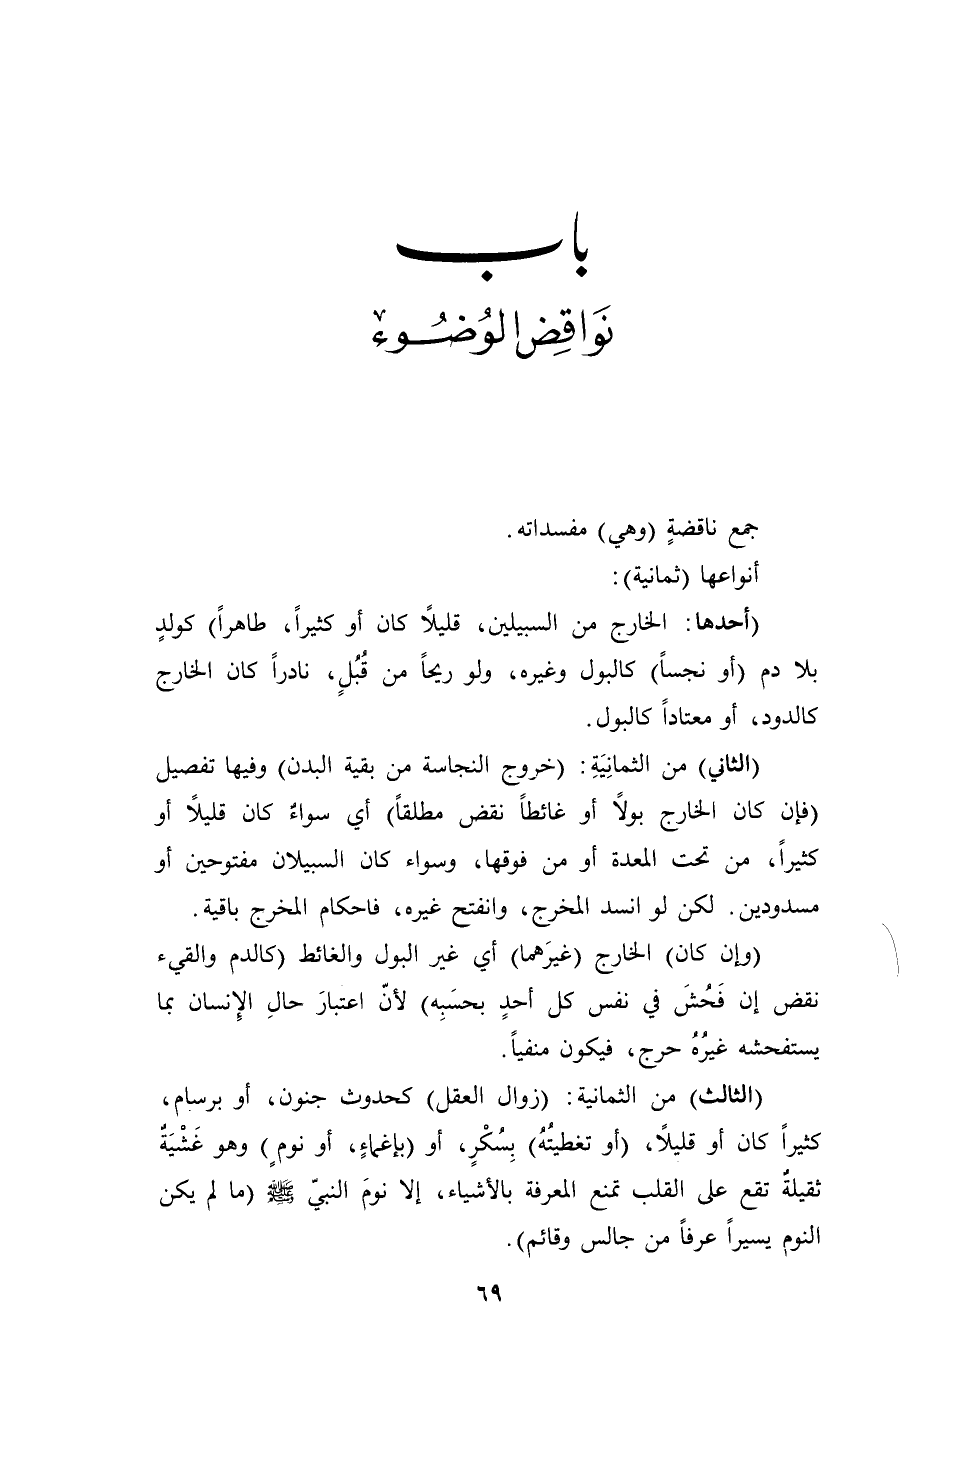 باب
نَوَاقِضِ الوُضُوءِ
جمع ناقضةٍ (وهي) مفسداته.
أنواعها (ثمانية):
(أحدها: الخارج من السبيلين، قليلًا كان أو كثيراً، طاهراً) كولدٍ
بلا دم (أو نجساً) كالبول وغيره، ولو ريحاً من قُبُلٍ، نادراً كان الخارج
كالدود، أو معتاداً كالبول.
(الثاني) من الثمانِيَةِ: (خروج النجاسة من بقية البدن) وفيها تفصيل
(فإن كان الخارج بولًا أو غائطاً نقض مطلقاً) أي سواءٌ كان قليلًا أو
كثيراً، من تحت المعدة أو من فوقها، وسواء كان السبيلان مفتوحين أو
مسدودين. لكن لو انسد المخرج، وانفتح غيره، فاحكام المخرج باقية.
(وإن كان) الخارج (غيرَهما) أي غير البول والغائط (كالدم والقيء
نقض إن فَحُشَ في نفس كل أحدٍ بحسَبِه) لأنّ اعتبارَ حالِ الإِنسان بما
يستفحشه غيرُهُ حرج، فيكون منفياً.
(الثالث) من الثمانية: (زوال العقل) كحدوث جنون، أو برسام،
كثيراً كان أو قليلًا، (أو تغطيتُهُ) بِسُكْرٍ، أو (بإغماءٍ، أو نومٍ) وهو غَشْيَةٌ
ثقيلةٌ تقع على القلب تمنع المعرفة بالأشياء، إلا نومَ النبيّ ﷺ (ما لم يكن
النوم يسيراً عرفاً من جالس وقائم).
٦٩